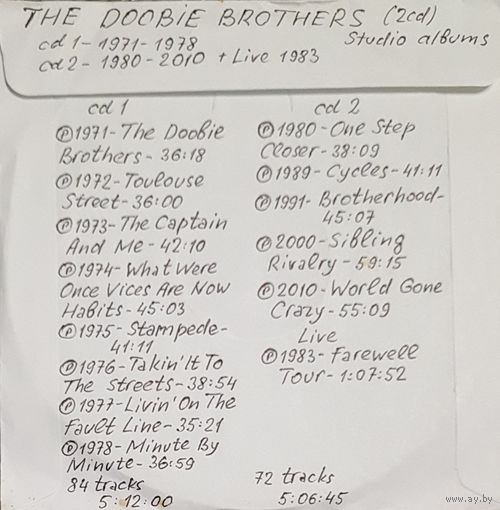 THE DOOBIE BROTHERS (2cd)
cd 1 - 1971 - 1978 Studio albums
cd 2 - 1980 - 2010 + Live 1983
cd 1
℗1971 - The Doobie
Brothers - 36:18
℗1972 - Toulouse
Street - 36:00
℗1973 - The Captain
And Me - 42:10
℗1974 - What Were
Once Vices Are Now
Habits - 45:03
℗1975 - Stampede -
41:11
℗1976 - Takin' It To
The Streets - 38:54
℗1977 - Livin' On The
Fault Line - 35:21
℗1978 - Minute By
Minute - 36:59
84 tracks
5:12:00
cd 2
℗1980 - One Step
Closer - 38:09
℗1989 - Cycles - 41:11
℗1991 - Brotherhood -
45:07
℗2000 - Sibling
Rivalry - 59:15
℗2010 - World Gone
Crazy - 55:09
Live
℗1983 - Farewell
Tour - 1:07:52
72 tracks
5:06:45
www.ay.by